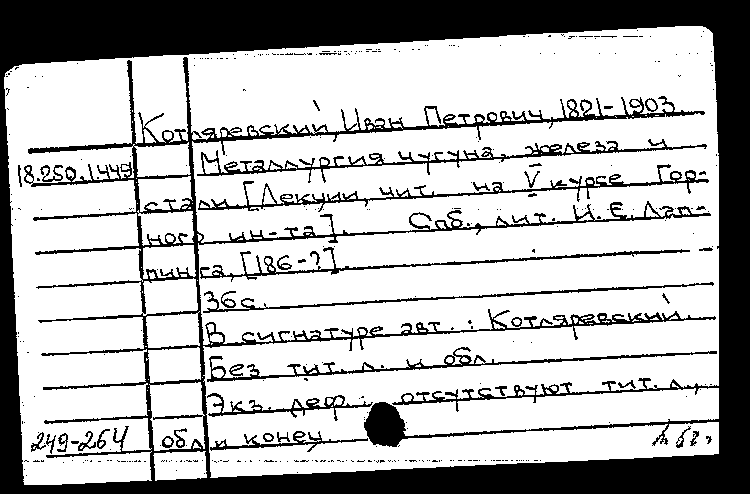 Котляревский, Иван Петрович, 1821-1903.
18.250.1449 Металлургия чугуна, железа и
стали [Лекции, чит. на V курсе Гор-
ного ин-та]. Спб., лит. И. Е. Лап-
пинга, [186-?]
36с.
В сигнатуре авт.: Котляревский.
Без тит. л. и обл.
Экз. деф.: отсутствуют тит. л.,
249-264 обл и конец.